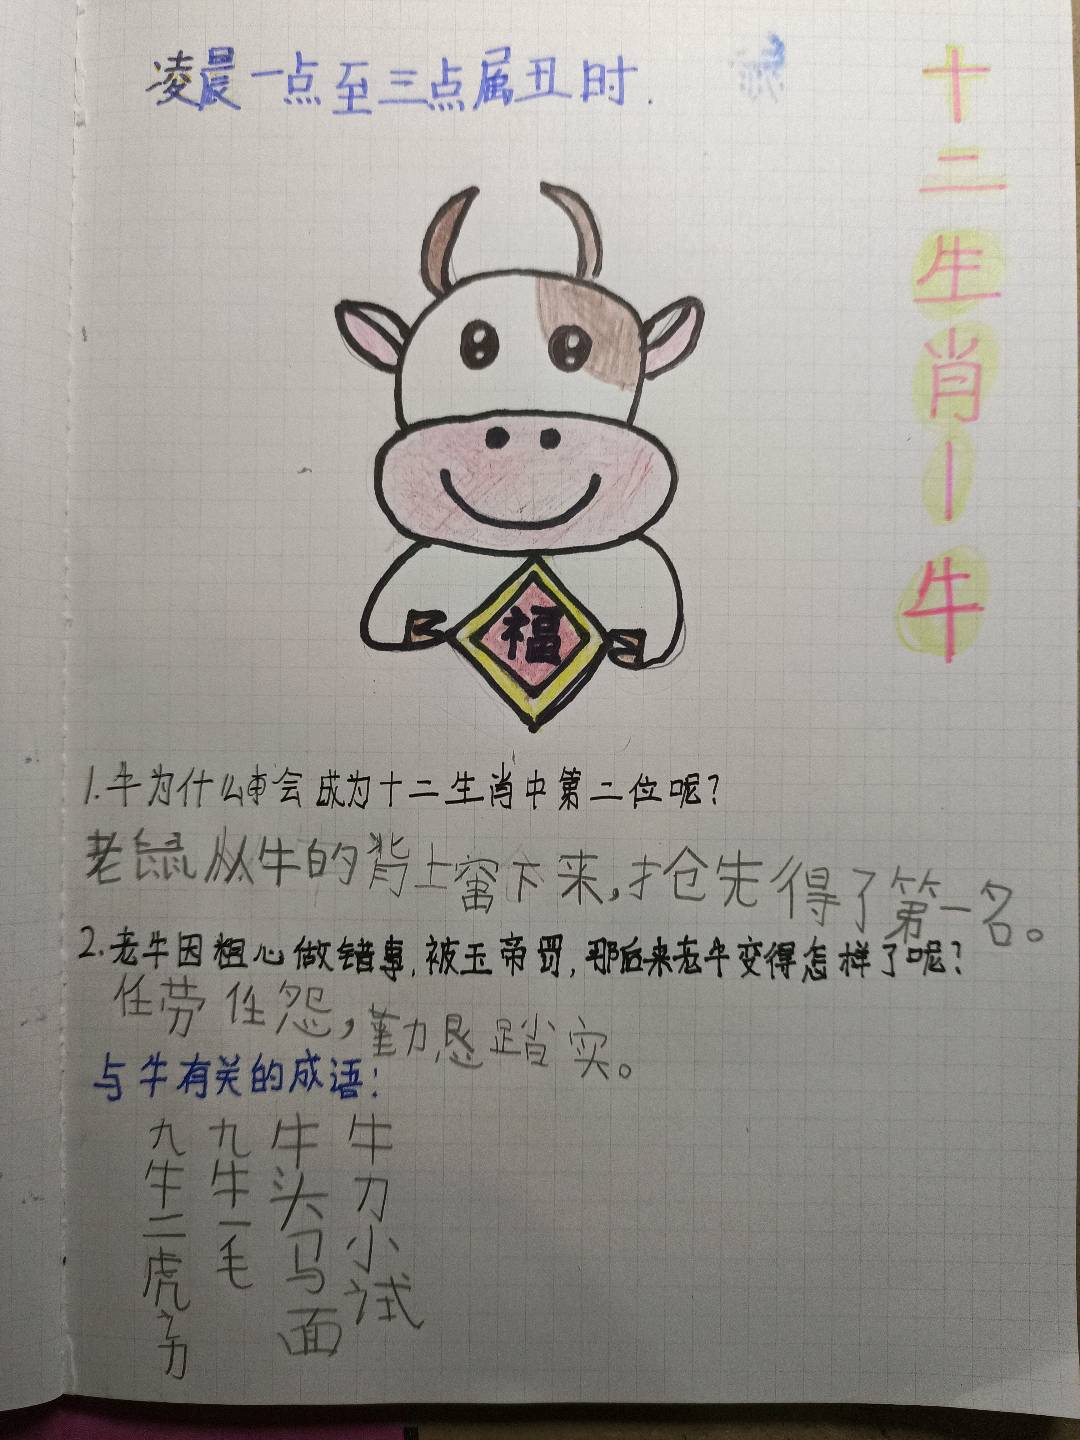 凌晨一点至三点属丑时.
十二生肖—牛
福
1.牛为什么会成为十二生肖中第二位呢?
老鼠从牛的背上窜下来,抢先得了第一名。
2.老牛因粗心做错事,被玉帝罚,那后来老牛变得怎样了呢?
任劳任怨,勤恳踏实。
与牛有关的成语:
九牛二虎之力
九牛一毛
牛头马面
牛刀小试